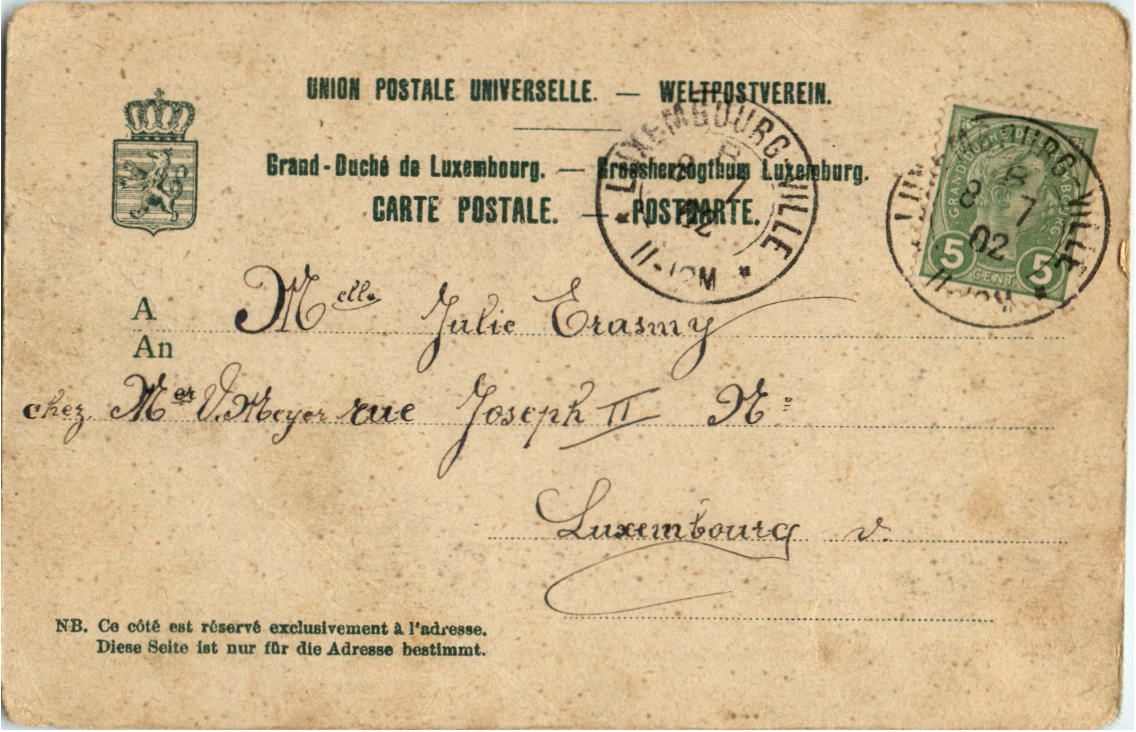 UNION POSTALE UNIVERSELLE. — WELTPOSTVEREIN.
Grand-Duché de Luxembourg. — Groessherzogthum Luxemburg.
CARTE POSTALE. — POSTKARTE.
LUXEMBOURG-VILLE
8 7
02
LUXEMBOURG-VILLE
8
8 7
02
5 CENT. 5
A Melle Julie Erasmy
An
chez Mer V. Meyer rue Joseph II No
Luxembourg v.
NB. Ce côté est réservé exclusivement à l'adresse.
Diese Seite ist nur für die Adresse bestimmt.